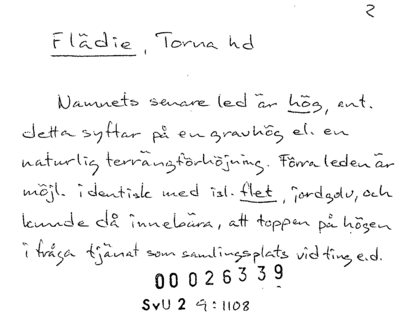 2
Flädie, Torna hd
Namnets senare led är hög, ant.
detta syftar på en gravhög el. en
naturlig terrängförhöjning. Förra leden är
möjl. identisk med isl. flet, jordgolv, och
kunde då innebära, att toppen på högen
i fråga tjänat som samlingsplats vid ting e.d.
00026339
SvU 2 9:1108